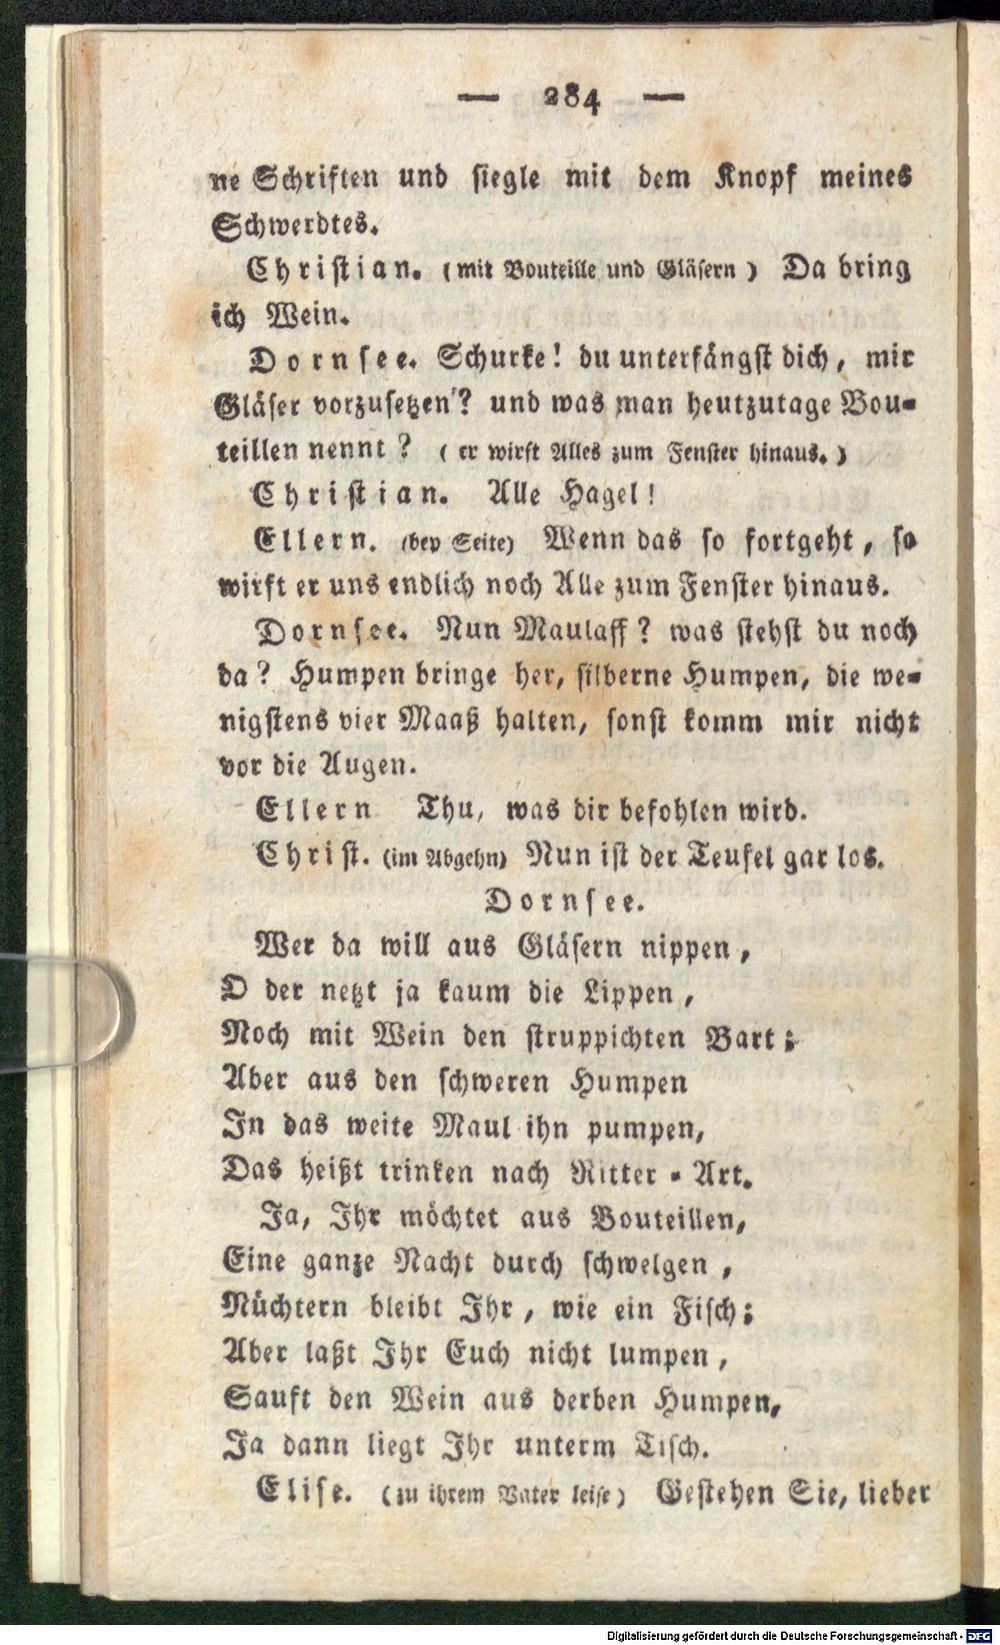 — 284 —
ne Schriften und siegle mit dem Knopf meines
Schwerdtes.
Christian. (mit Bouteille und Gläsern) Da bring
ich Wein.
Dornsee. Schurke! du unterfängst dich, mir
Gläser vorzusetzen? und was man heutzutage Bou-
teillen nennt? (er wirft Alles zum Fenster hinaus.)
Christian. Alle Hagel!
Ellern. (bey Seite) Wenn das so fortgeht, so
wirft er uns endlich noch Alle zum Fenster hinaus.
Dornsee. Nun Maulaff? was stehst du noch
da? Humpen bringe her, silberne Humpen, die we-
nigstens vier Maaß halten, sonst komm mir nicht
vor die Augen.
Ellern Thu, was dir befohlen wird.
Christ. (im Abgehn) Nun ist der Teufel gar los.
Dornsee.
Wer da will aus Gläsern nippen,
O der netzt ja kaum die Lippen,
Noch mit Wein den struppichten Bart;
Aber aus den schweren Humpen
In das weite Maul ihn pumpen,
Das heißt trinken nach Ritter-Art.
Ja, Ihr möchtet aus Bouteillen,
Eine ganze Nacht durch schwelgen,
Nüchtern bleibt Ihr, wie ein Fisch;
Aber laßt Ihr Euch nicht lumpen,
Sauft den Wein aus derben Humpen,
Ja dann liegt Ihr unterm Tisch.
Elise. (zu ihrem Vater leise) Gestehen Sie, lieber
Digitalisierung gefördert durch die Deutsche Forschungsgemeinschaft - DFG